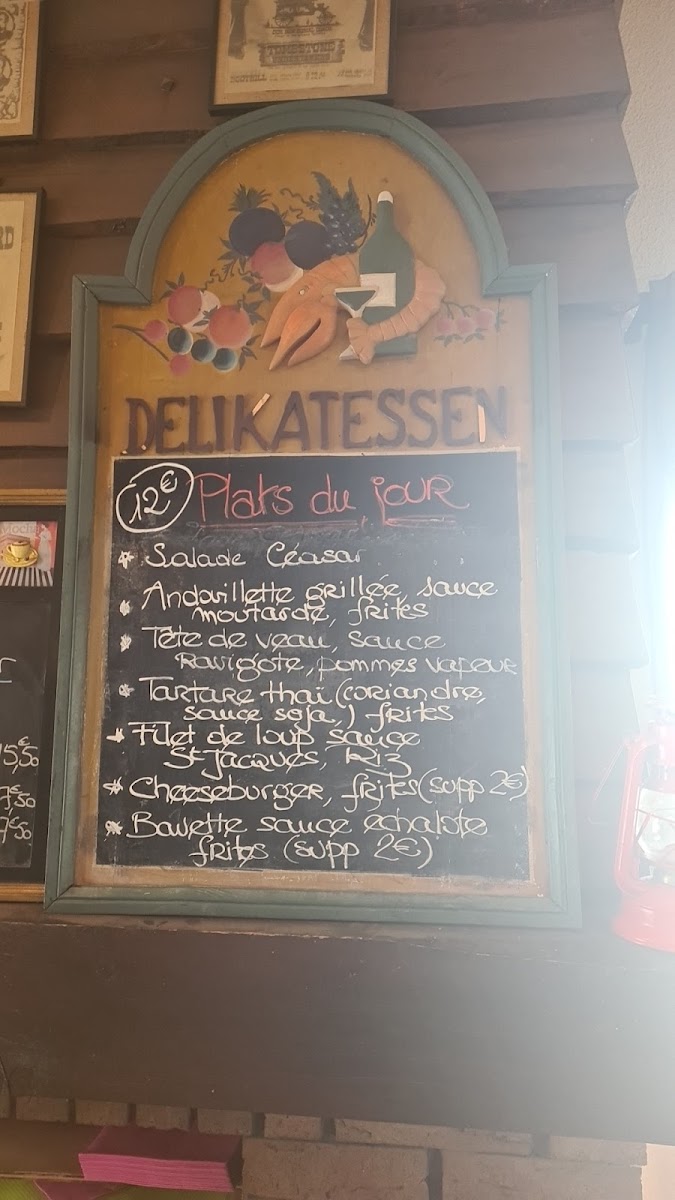 TOMBSTONE
RD
DELIKATESSEN
12€ Plats du jour
* Salade Céasar
* Andouillette grillée, sauce
moutarde, frites
* Tête de veau, sauce
Ravigote, pommes vapeur
* Tartare thaï (coriandre,
sauce soja,) frites
* Filet de loup sauce
St Jacques, Riz
* Cheeseburger, frites (supp 2€)
* Bavette sauce echalote
frites (supp 2€)
5,50
7€50
7€50